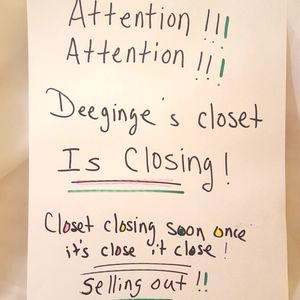 Attention !!!
Attention !!!
Deeginge's closet
Is Closing!
Closet closing soon once
it's close it close!
Selling out !!